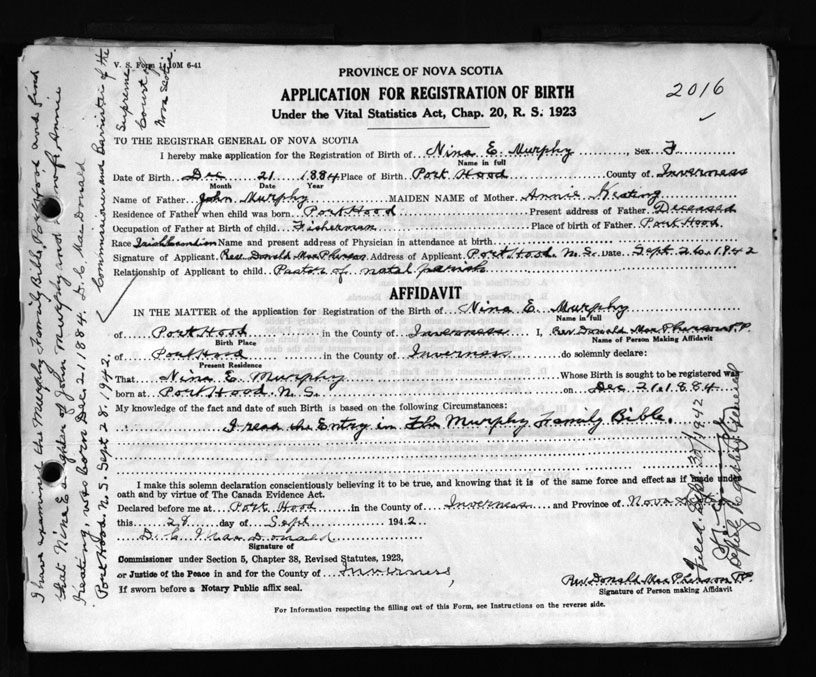 V. S. Form 1, 10M 6-41
PROVINCE OF NOVA SCOTIA
APPLICATION FOR REGISTRATION OF BIRTH
Under the Vital Statistics Act, Chap. 20, R. S. 1923
2016
TO THE REGISTRAR GENERAL OF NOVA SCOTIA
I hereby make application for the Registration of Birth of Nina E. Murphy, Sex F.
Name in full
Date of Birth Dec 21 1884 Place of Birth Port Hood County of Inverness
Month Date Year
Name of Father John Murphy MAIDEN NAME of Mother Annie Keating
Residence of Father when child was born Port Hood Present address of Father Deceased
Occupation of Father at Birth of child Fisherman Place of birth of Father Port Hood
Race Irish Canadian Name and present address of Physician in attendance at birth
Signature of Applicant Rev. Donald MacPherson Address of Applicant Port Hood N.S. Date Sept. 26, 1942
Relationship of Applicant to child Pastor of natal parish
AFFIDAVIT
IN THE MATTER of the application for Registration of the Birth of Nina E. Murphy
Name in full
of Port Hood in the County of Inverness I, Rev Donald MacPherson P.P.
Birth Place Name of Person Making Affidavit
of Port Hood in the County of Inverness do solemnly declare:
Present Residence
That Nina E. Murphy Whose Birth is sought to be registered was
born at Port Hood N.S. on Dec 21, 1884
My knowledge of the fact and date of such Birth is based on the following Circumstances:
I read the Entry in The Murphy Family Bible.
I make this solemn declaration conscientiously believing it to be true, and knowing that it is of the same force and effect as if made under
oath and by virtue of The Canada Evidence Act.
Declared before me at Port Hood in the County of Inverness and Province of Nova Scotia
this 28 day of Sept 1942
D. C. MacDonald
Signature of
Commissioner under Section 5, Chapter 38, Revised Statutes, 1923,
or Justice of the Peace in and for the County of Inverness
If sworn before a Notary Public affix seal.
Rev Donald MacPherson PP
Signature of Person making Affidavit
For Information respecting the filling out of this Form, see Instructions on the reverse side.
I have examined the Murphy Family Bible, Port Hood and find
that Nina E daughter of John Murphy and wife Annie
Keating, was born Dec. 21 1884. D. C. MacDonald
Port Hood. N.S. Sept 28. 1942. Commissioner and Barrister of the
Supreme
Court of
Nova Scotia.
Filed Sept 1942
Deputy Registrar General